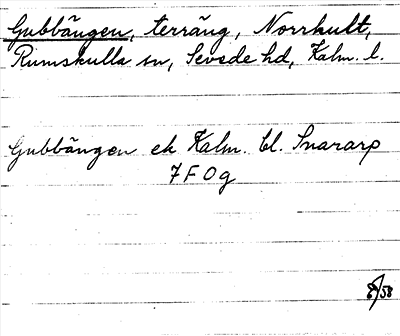 Gubbängen, terräng, Norrhult,
Rumskulla sn, Sevede hd, Kalm. l.
Gubbängen ek Kalm. bl. Snararp
7 F 0 g
/58